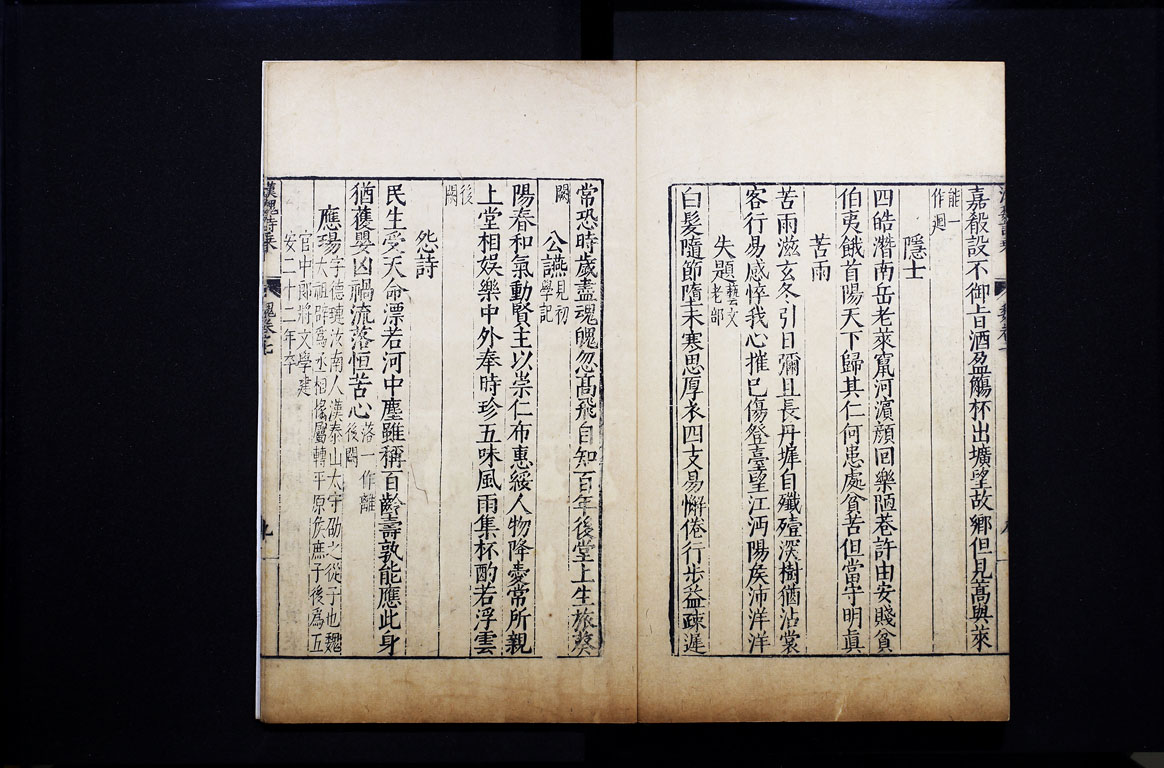 嘉殽設不御旨酒盈觴杯出壙望故鄉但見高與萊
能一
作迴
隱士
四皓潛南岳老萊竄河濱顔回樂陋巷許由安賤貧
伯夷餓首陽天下歸其仁何患處貧苦但當守明眞
苦雨
苦雨滋玄冬引日彌且長丹墀自殲殪深樹猶沾裳
客行易感悴我心摧已傷登臺望江沔陽侯沛洋洋
失題
藝文
老部
白髮隨節墮未寒思厚衣四支易懈倦行步益疎遲
常恐時歲盡魂魄忽高飛自知百年後堂上生旅葵
闕
公讌
見初
學記
陽春和氣動賢主以崇仁布惠綏人物降愛常所親
上堂相娛樂中外奉時珍五味風雨集杯酌若浮雲
後
闕
怨詩
民生受天命漂若河中塵雖稱百齡壽孰能應此身
猶獲嬰凶禍流落恒苦心
落一作離
後闕
應瑒
字德璉汝南人漢泰山太守劭之從子也魏
太祖辟爲丞相掾屬轉平原侯庶子後爲五
官中郎將文學建
安二十二年卒
漢魏詩
魏卷七
九